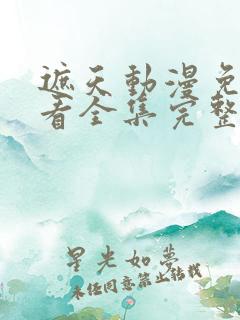 遮天動漫免
看全集完整
星光如夢
未经同意禁止转载